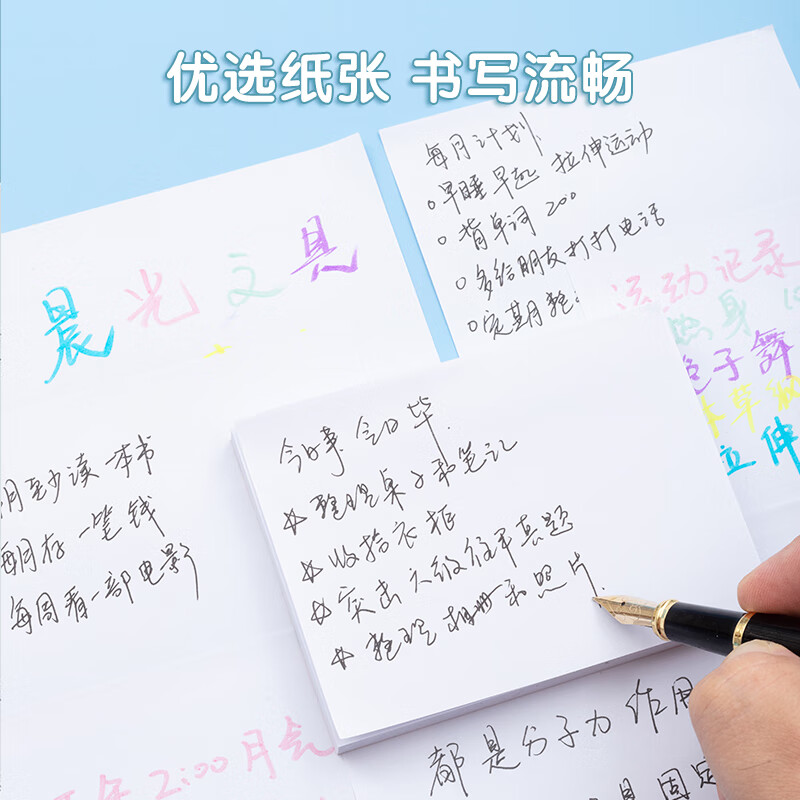 优选纸张 书写流畅
晨光文具
每月计划
早睡早起 拉伸运动
背单词 200
多给朋友打打电话
定期整
运动记录
热身 10
子舞
拉伸
月至少读一本书
每月存一笔钱
每周看一部电影
今日事 今日毕
整理桌子和笔记
收拾衣柜
突击六级往年真题
整理相册和照片.
2:00月
都是分子力作用
固定